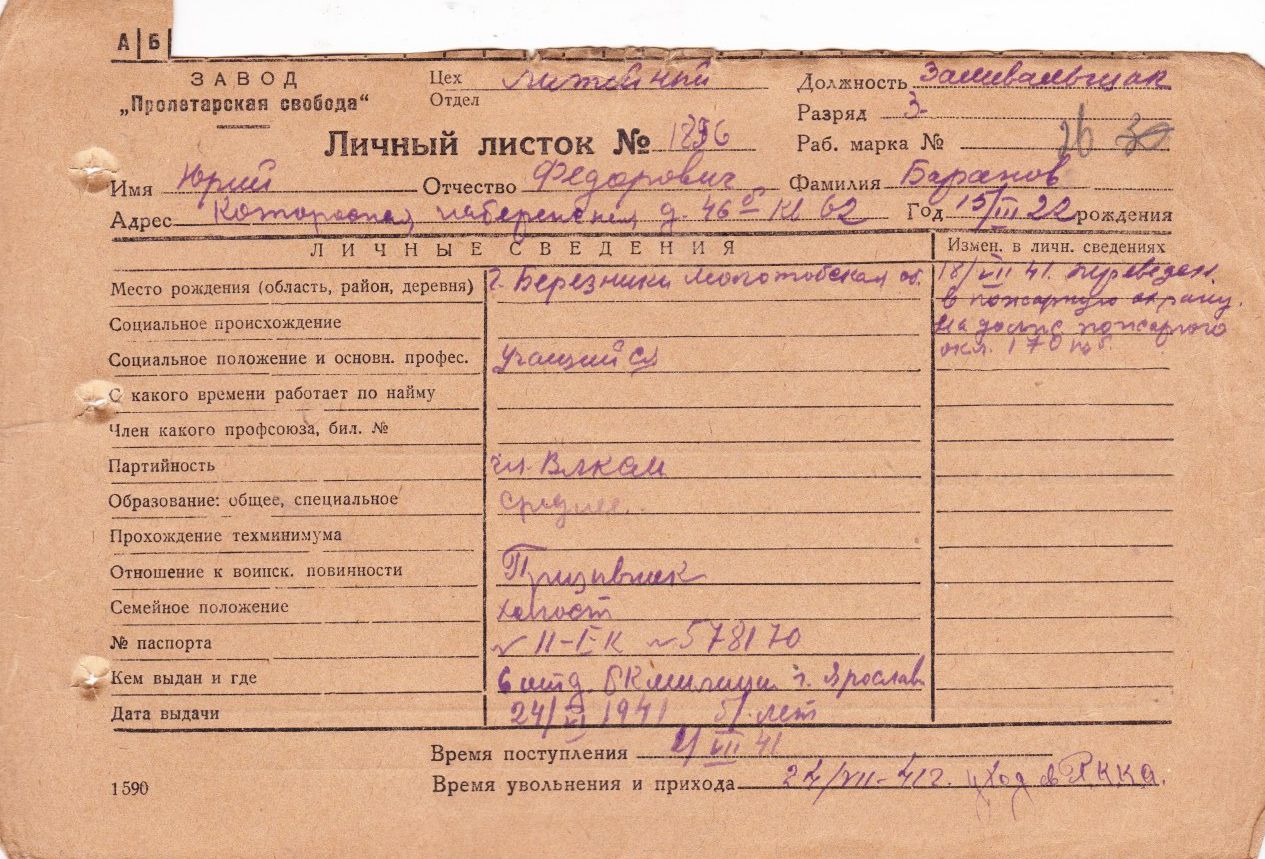 А|Б
ЗАВОД
„Пролетарская свобода“
Цех литейный
Отдел
Должность Заливальщик
Разряд 3
Личный листок № 1896
Раб. марка № 26 30
Имя Юрий Отчество Федорович Фамилия Баранов
Адрес Которосная набережная д. 46 б кв 62 Год 15/III 22 рождения
ЛИЧНЫЕ СВЕДЕНИЯ
Измен. в личн. сведениях
Место рождения (область, район, деревня) г. Березники Молотовская об.
18/VII 41. переведен
в пожарную охрану.
на долж пожарного
окл. 170 руб.
Социальное происхождение
Социальное положение и основн. професс. учащийся
С какого времени работает по найму
Член какого профсоюза, бил. №
Партийность чл. Влксм
Образование: общее, специальное среднее.
Прохождение техминимума
Отношение к воинск. повинности Призывник
Семейное положение холост
№ паспорта II-IК № 578170
Кем выдан и где 6 отд. РКмилиции г. Ярослав
Дата выдачи 24/VI 1941 5/лет
Время поступления 2/VII 41
Время увольнения и прихода 24/VII-41г. уход в РККА.
1590